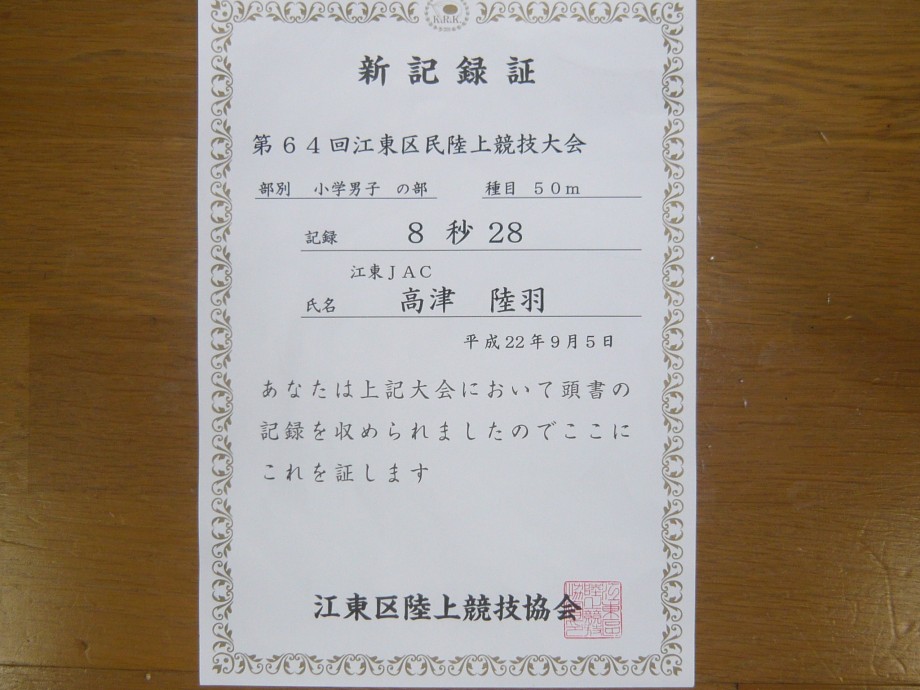 K.R.K.
新記録証
第64回江東区民陸上競技大会
部別 小学男子 の部 種目 50m
記録 8秒28
江東JAC
氏名 高津 陸羽
平成22年9月5日
あなたは上記大会において頭書の
記録を収められましたのでここに
これを証します
江東区陸上競技協会